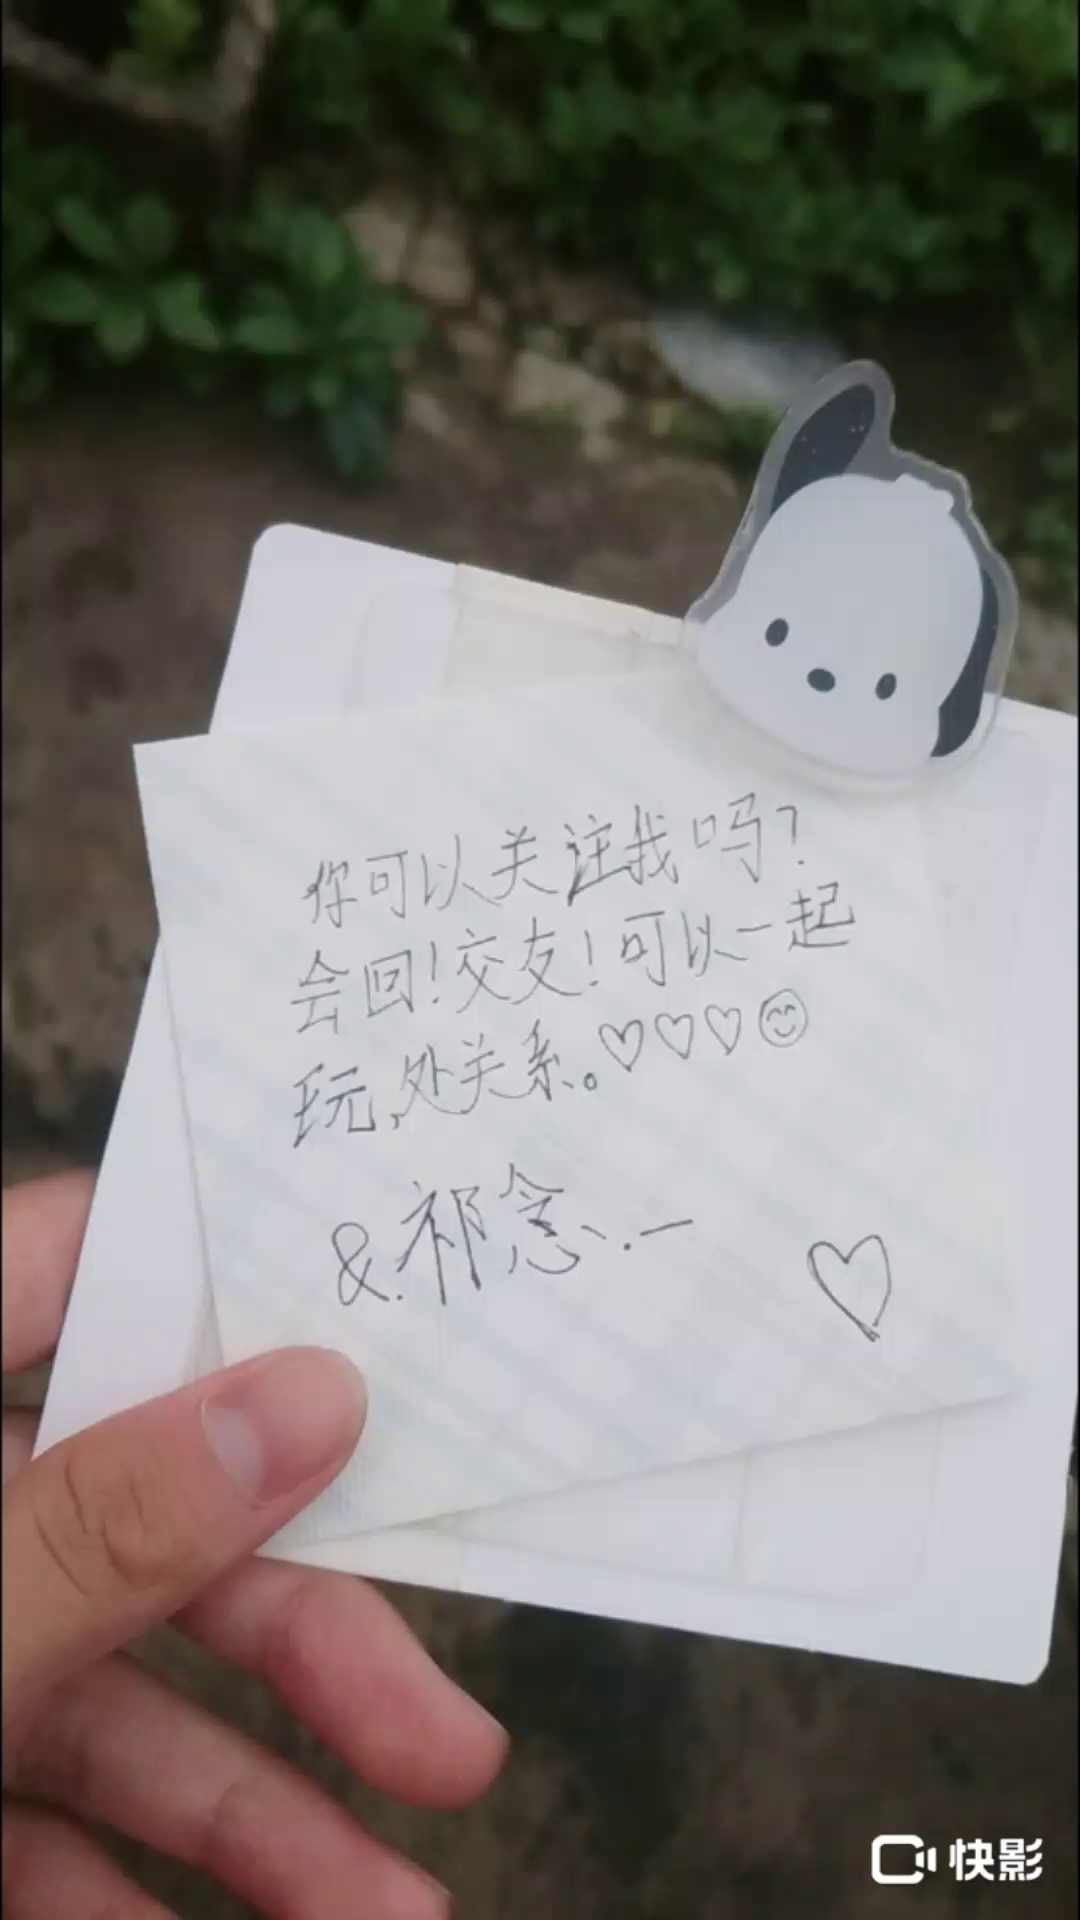 你可以关注我吗?
会回!交友!可以一起
玩,处关系。♡♡♡😊
&.祁念、.一
♡
快影